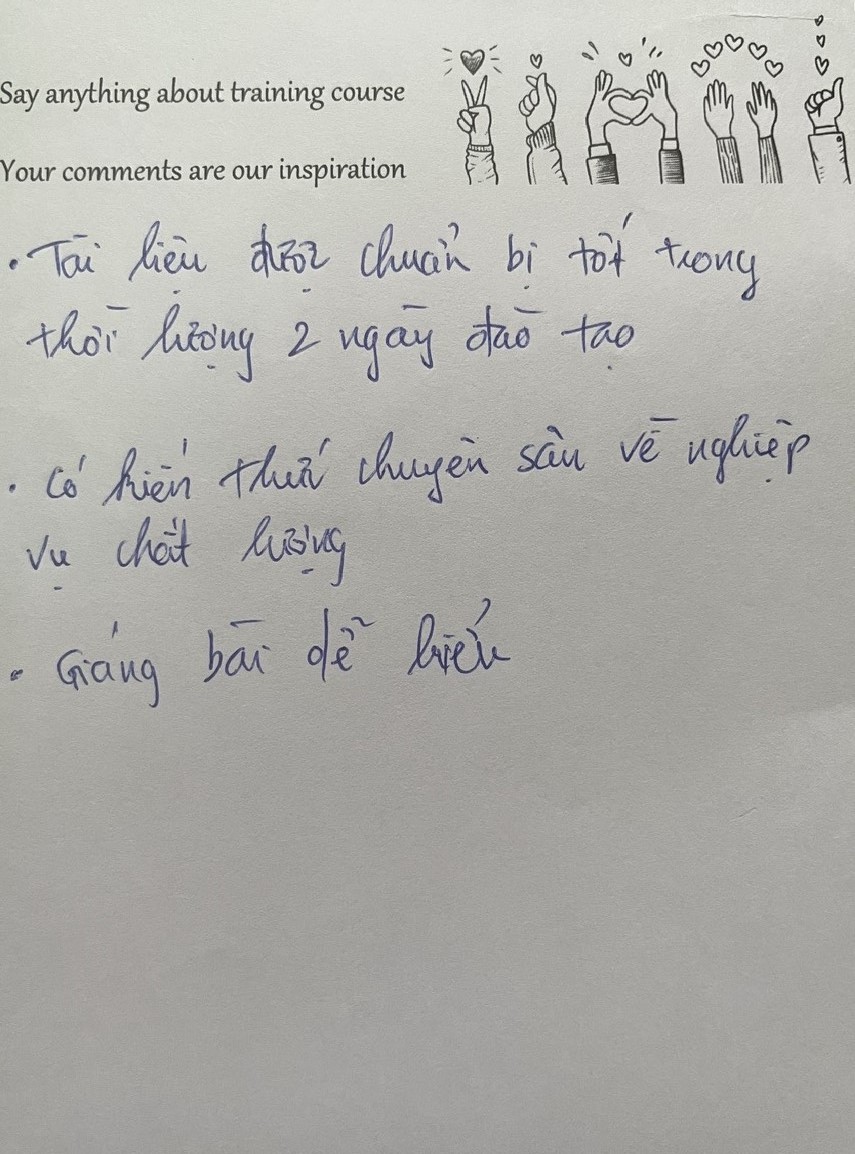 Say anything about training course
Your comments are our inspiration
• Tài liệu được chuẩn bị tốt trong
thời lượng 2 ngày đào tạo
• Có kiến thức chuyên sâu về nghiệp
vụ chất lượng
• Giảng bài dễ hiểu